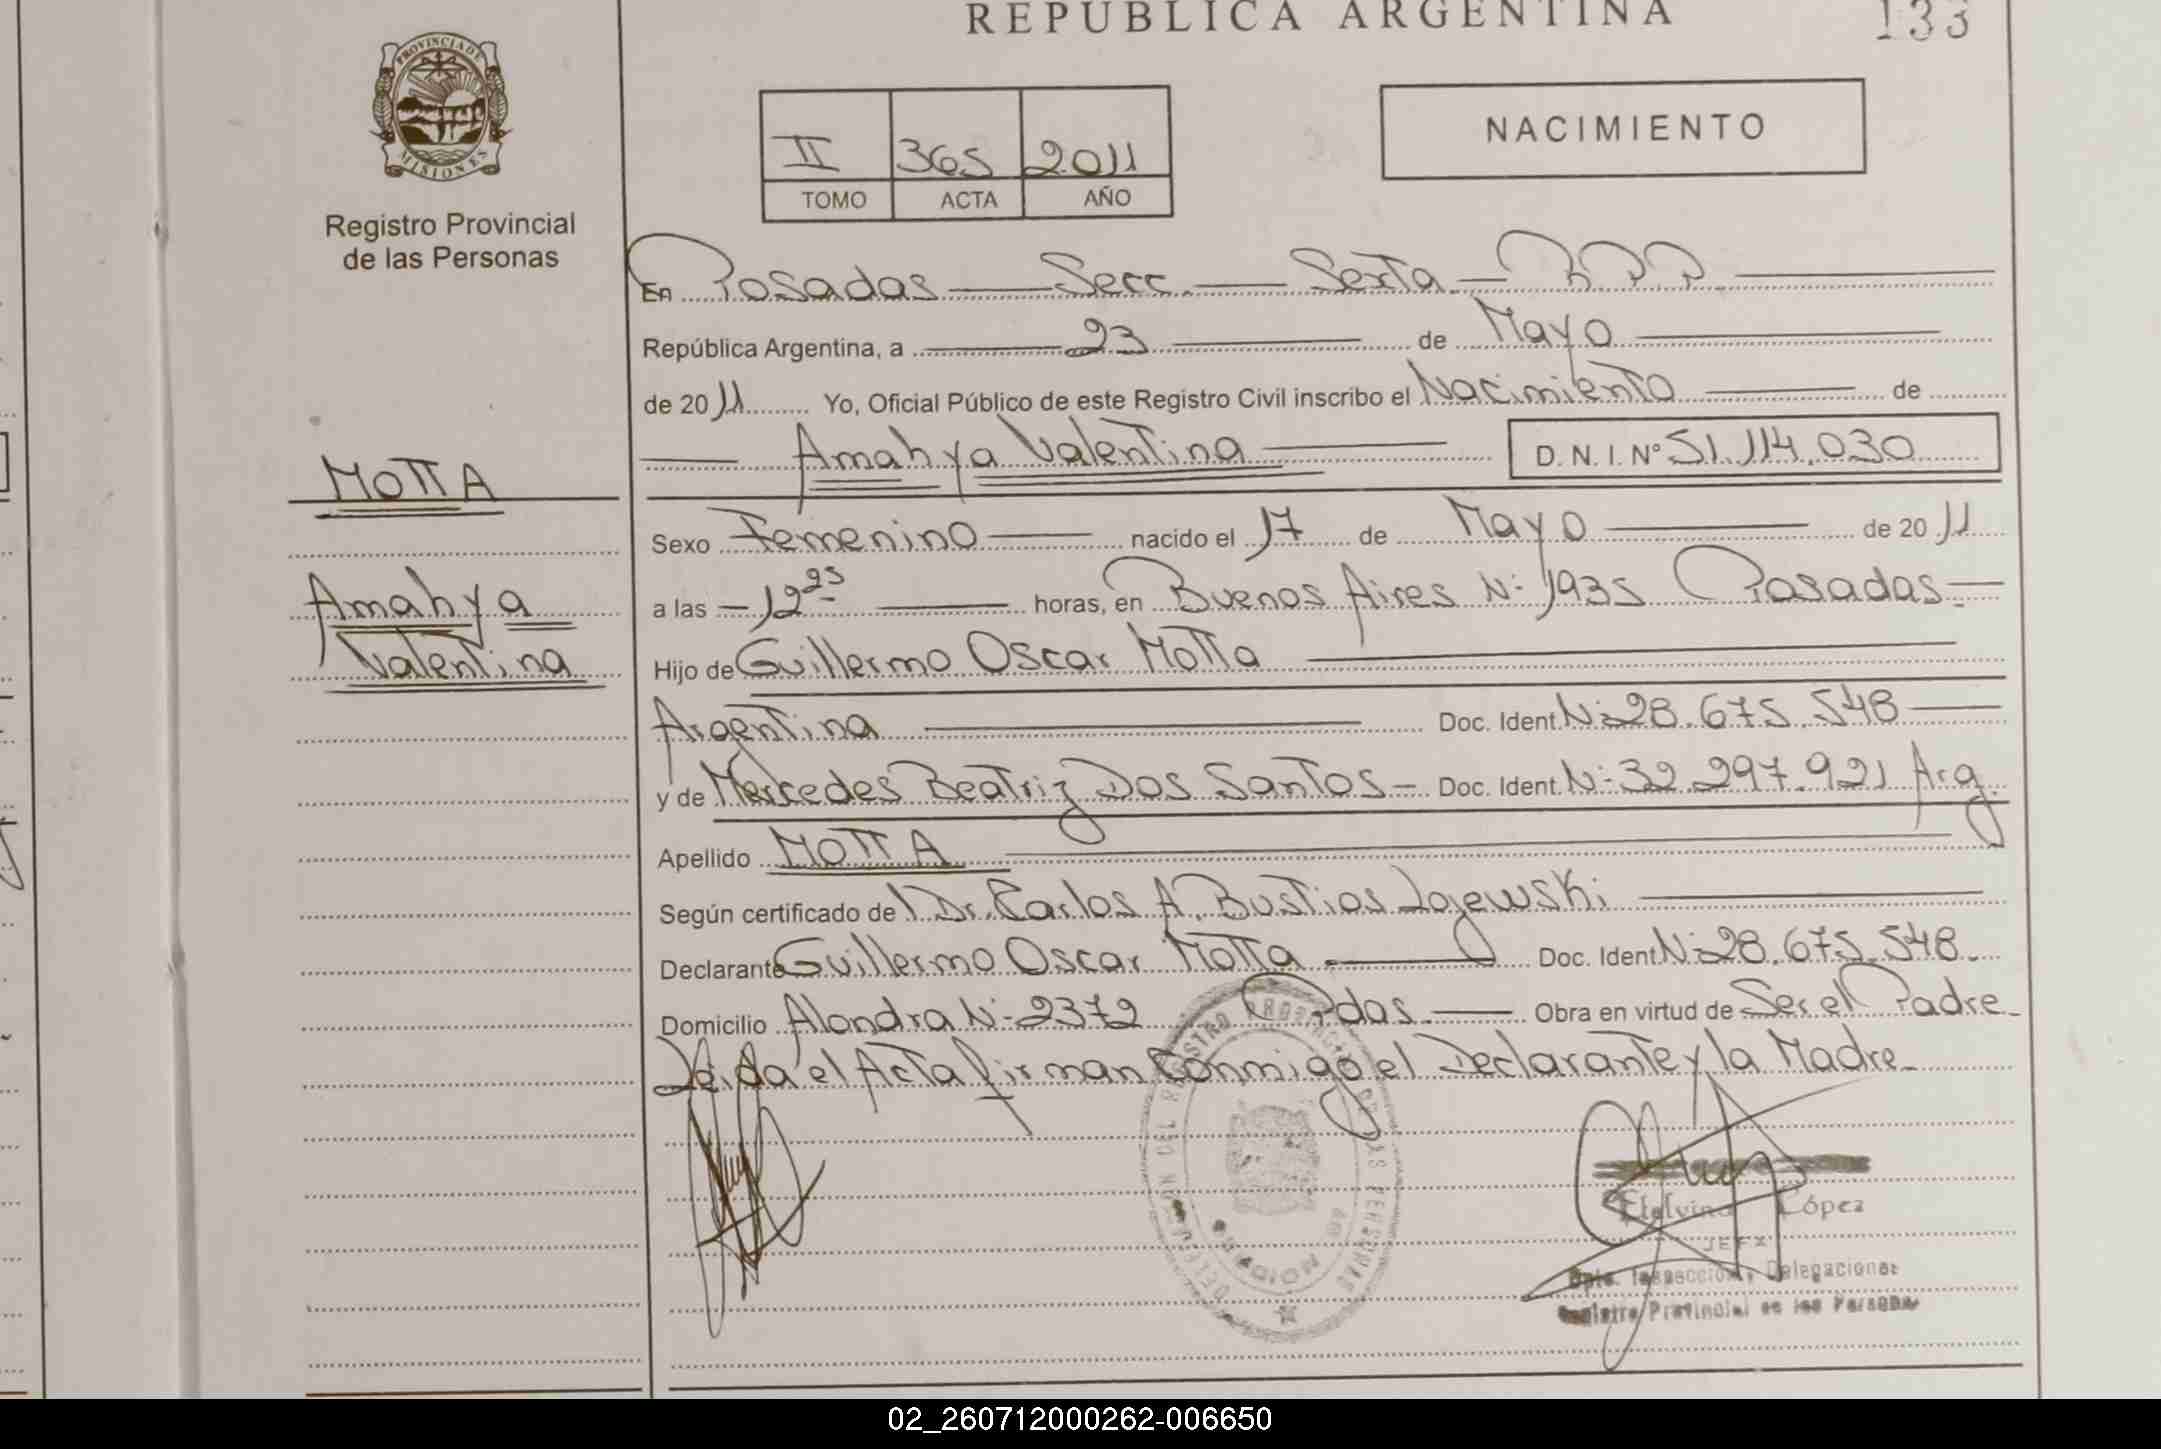 REPUBLICA ARGENTINA
133
PROVINCIA DE
MISIONES
Registro Provincial
de las Personas
II 365 2011
TOMO ACTA AÑO
NACIMIENTO
En Posadas — Secc. — Sexta — R P P.
República Argentina, a 23 de Mayo
de 2011 Yo, Oficial Público de este Registro Civil inscribo el Nacimiento de
Amahya Valentina D. N. I. Nº 51.114.030
MOTTA
Sexo Femenino nacido el 17 de Mayo de 2011
Amahya
Valentina
a las 12 25 horas, en Buenos Aires Nº 1935 Posadas.
Hijo de Guillermo Oscar Motta
Argentina Doc. Ident. Nº 28.675.548
y de Mercedes Beatriz Dos Santos Doc. Ident. Nº 32.297.921 Arg.
Apellido MOTTA
Según certificado del Dr. Carlos A. Bustios Lojewski
Declarante Guillermo Oscar Motta Doc. Ident. Nº 28.675.548.
Domicilio Alondra Nº 2372 Pdas. Obra en virtud de Ser el Padre.
Leida el Acta firman Conmigo el Declarante y la Madre.
Etelvina López
JEFA
Dpto. Inspección, Delegaciones
Registro Provincial de las Personas
02_260712000262-006650